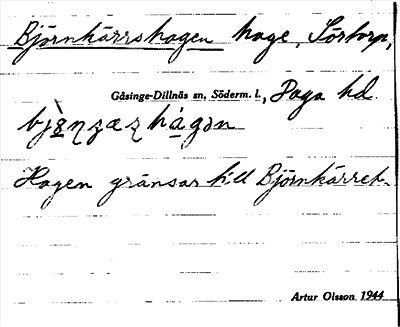 Björnkärrshagen hage, Sörtorp,
Gåsinge-Dillnäs sn, Söderm. l., Daga hd
Hagen gränsar till Björnkärret.
Artur Olsson 1944